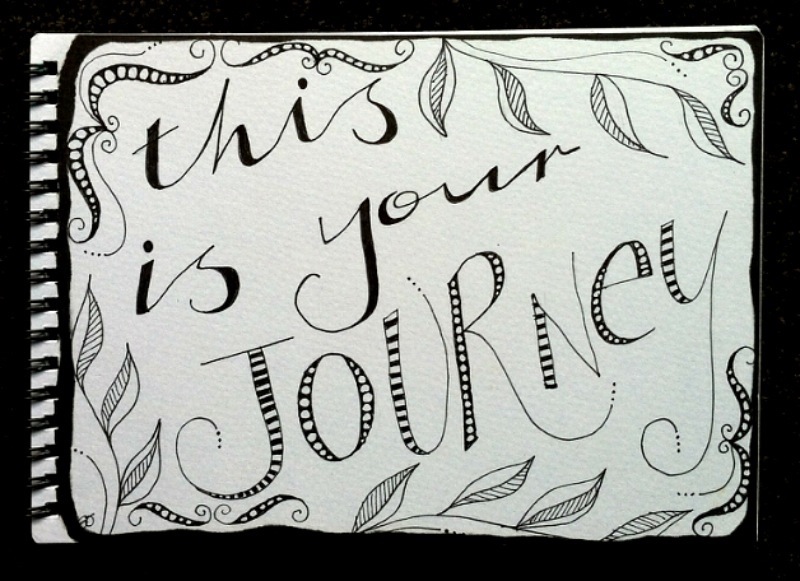 this
is your
JOURNey